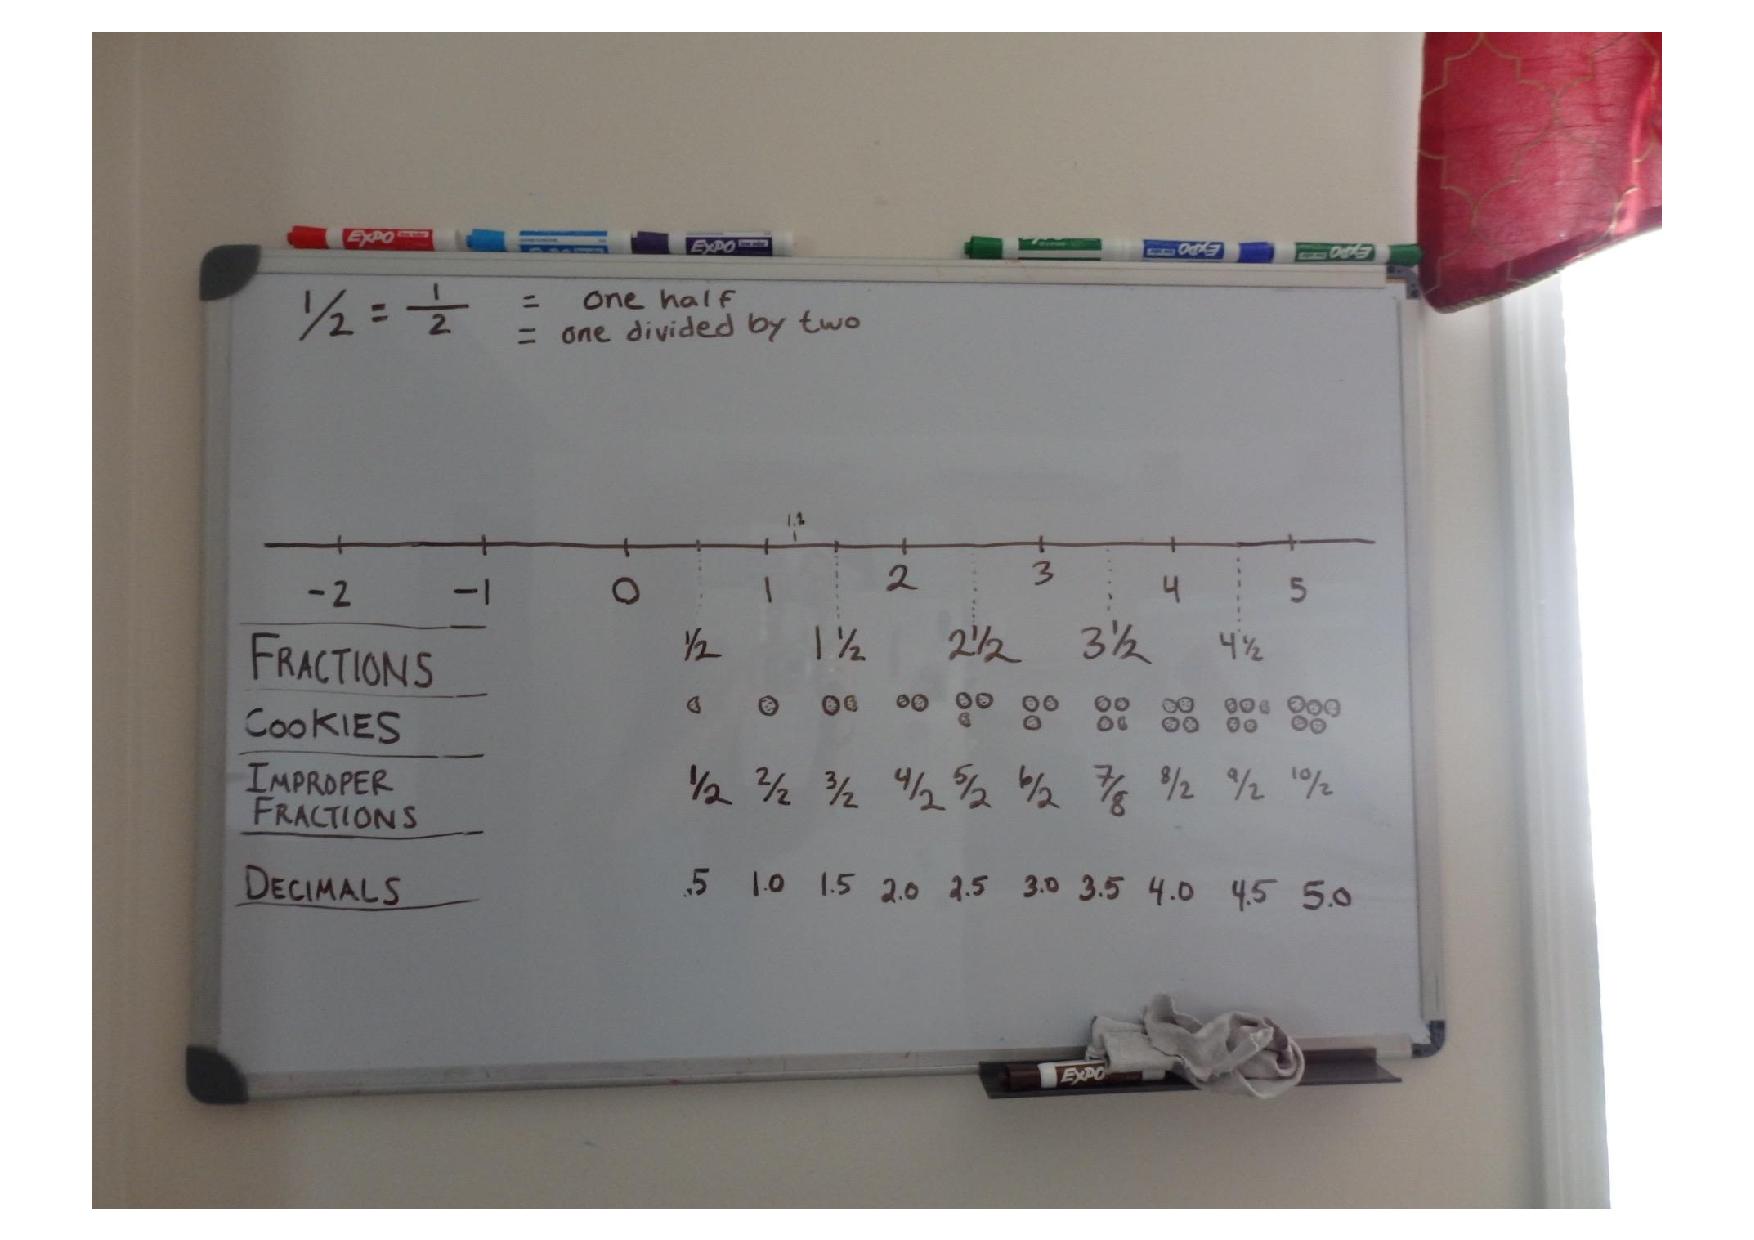 EXPO
EXPO
EXPO
EXPO
1/2 = 1/2 = one half
= one divided by two
-2 -1 0 1 2 3 4 5
FRACTIONS 1/2 1 1/2 2 1/2 3 1/2 4 1/2
COOKIES
IMPROPER FRACTIONS 1/2 2/2 3/2 4/2 5/2 6/2 7/8 8/2 9/2 10/2
DECIMALS .5 1.0 1.5 2.0 2.5 3.0 3.5 4.0 4.5 5.0
EXPO